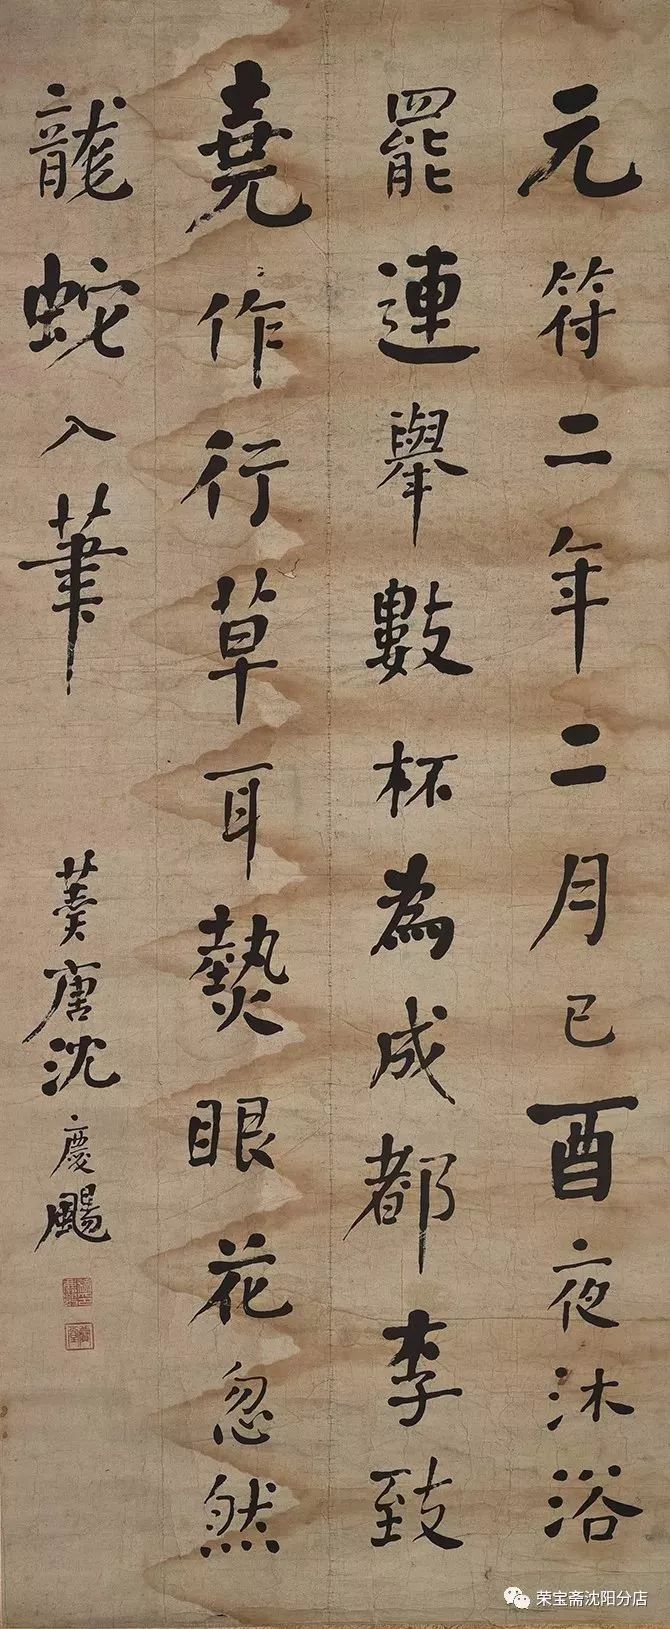 元符二年二月己酉夜沐浴
罷連舉數杯為成都李致
堯作行草耳熱眼花忽然
龍蛇入筆
沈慶颺
荣宝斋沈阳分店